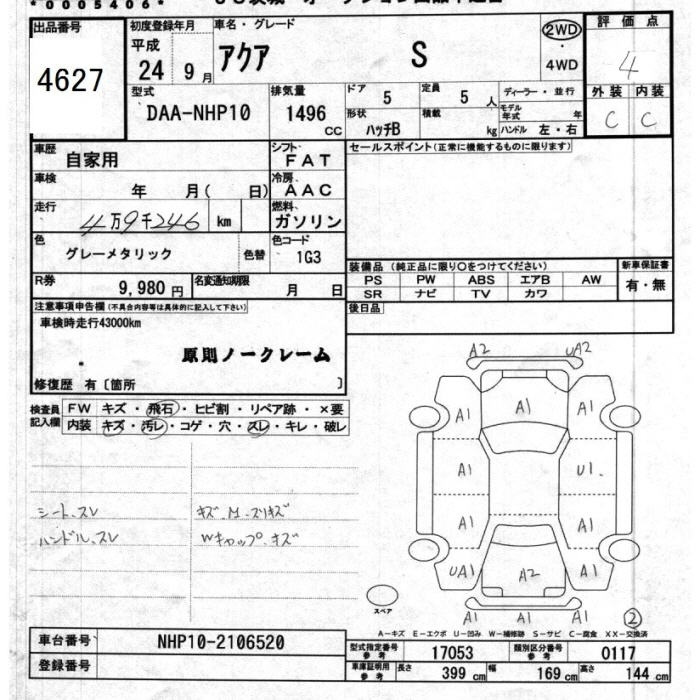 *0005406*
出品番号 初度登録年月 車名・グレード 2WD 評価点
4627 平成 24 9月 アクア S ・4WD 4
型式 排気量 ドア 定員 ディーラー・並行 外装 内装
DAA-NHP10 1496 CC 5 5人 モデル年式 年 C C
形状 積載 ハンドル 左・右
ハッチB kg
車歴 自家用 シフト FAT セールスポイント(正常に機能するものに限ります)
車検 年 月( 日) 冷房 AAC
走行 4万9千246 km 燃料 ガソリン
色 グレーメタリック 色替 色コード 1G3
装備品 (純正品に限り○をつけてください) 新車保証書
R券 9,980円 名変通知期限 月 日 PS PW ABS エアB AW 有・無
SR ナビ TV カワ
注意事項申告欄(不具合内容等は具体的に記入して下さい) 後日品
車検時走行43000km
原則ノークレーム
修復歴 有〔箇所 〕
検査員記入欄 FW キズ・飛石・ヒビ割・リペア跡・×要
内装 キズ・汚レ・コゲ・穴・スレ・キレ・破レ
シート.スレ キズ.M.スリキズ
ハンドル.スレ Wキャップ.キズ
A2 UA2
A1 A1 A1
A1 U1.
A1 A1
UA1 A2 A1
A1 A1 A1
スペア ②
A-キズ E-エクボ U-凹み W-補修跡 S-サビ C-腐食 XX-交換済
車台番号 NHP10-2106520 型式指定番号 参考 17053 類別区分番号 参考 0117
登録番号 車庫証明用 参考 長さ 399cm 幅 169cm 高さ 144cm